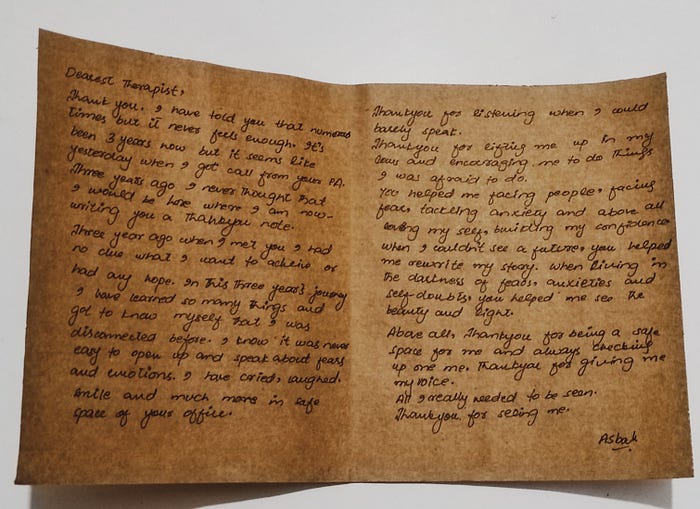 Dearest Therapist,
Thank you. I have told you that numerous
times but it never feels enough. It's
been 3 years now but it seems like
yesterday when I got call from your PA.
Three years ago I never thought that
I would be here where I am now-
writing you a Thankyou note.
Three year ago when I met you I had
no clue what I want to achieve or
had any hope. In this three year's journey
I have learned so many things and
got to know myself that I was
disconnected before. I know it was never
easy to open up and speak about fears
and emotions. I have cried, laughed,
smile and much more in safe
space of your office.
Thankyou for listening when I could
barely speak.
Thankyou for lifting me up in my
lows and encouraging me to do things
I was afraid to do.
You helped me facing people, facing
fear, tackling anxiety and above all
loving my self, building my confidence
when I couldn't see a future, you helped
me rewrite my story. When living in
the darkness of fears, anxieties and
self-doubts, you helped me see the
beauty and light.
Above all, Thankyou for being a safe
space for me and always checking
up one me. Thankyou for giving me
my voice.
All I really needed to be seen.
Thankyou for seeing me.
Asbah